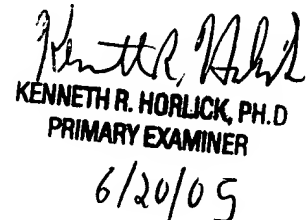 Kenneth R. Horlick
KENNETH R. HORLICK, PH.D
PRIMARY EXAMINER
6/20/05